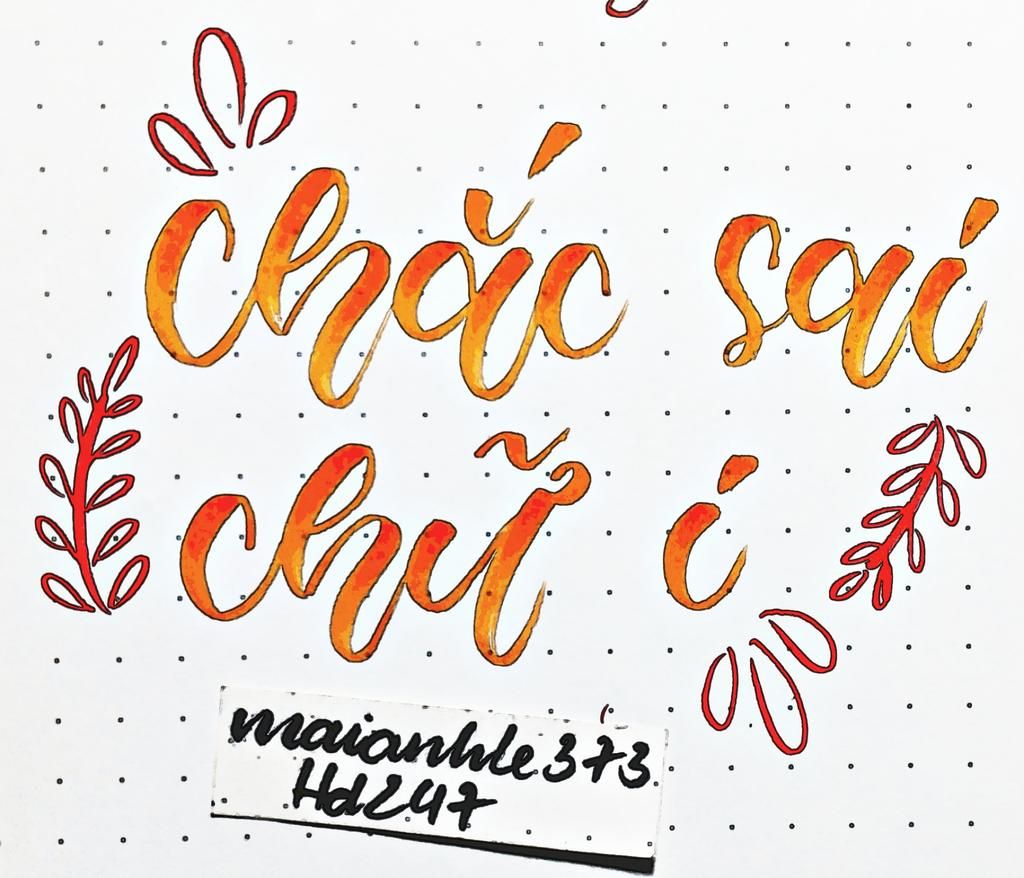 Chắc sai
chữ í
maianhle373
Hd247